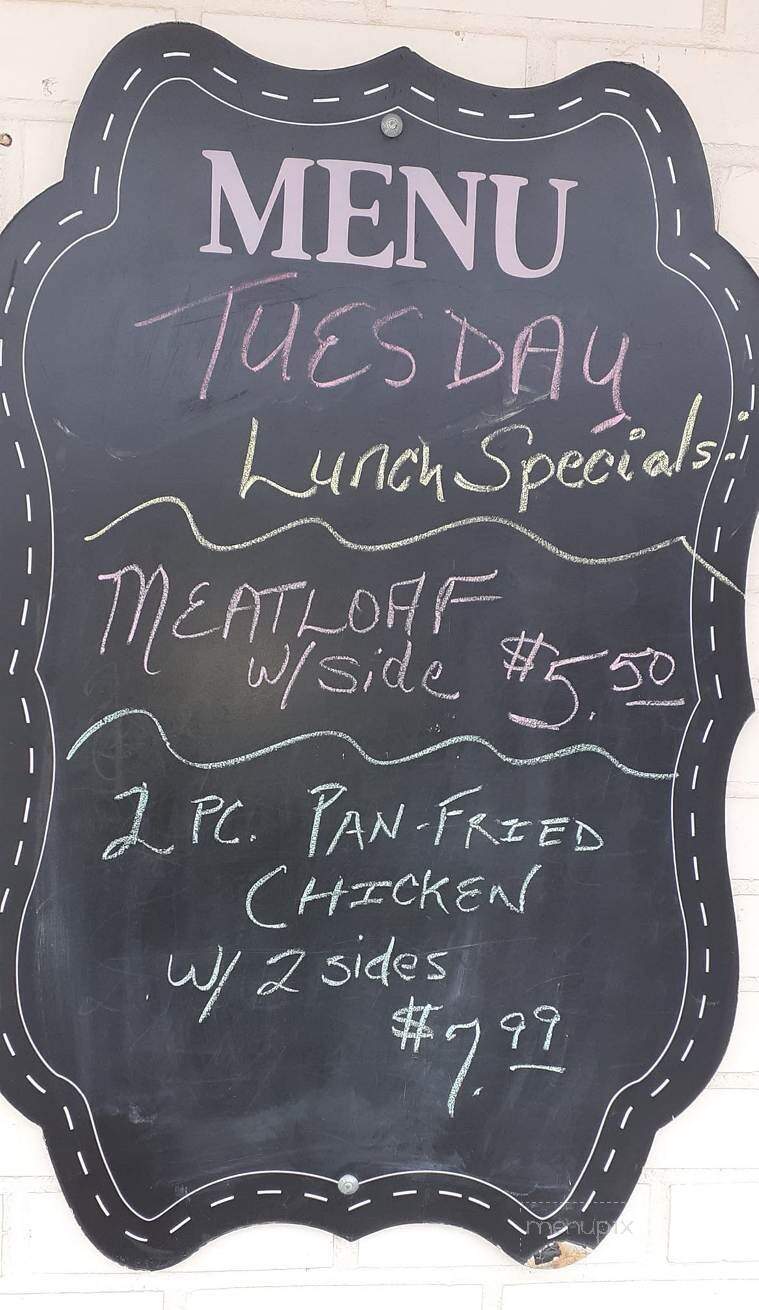 MENU
TUESDAY
Lunch Specials:
MEATLOAF
w/side $5.50
2 PC. PAN-FRIED
CHICKEN
w/ 2 sides
$7.99
menupix